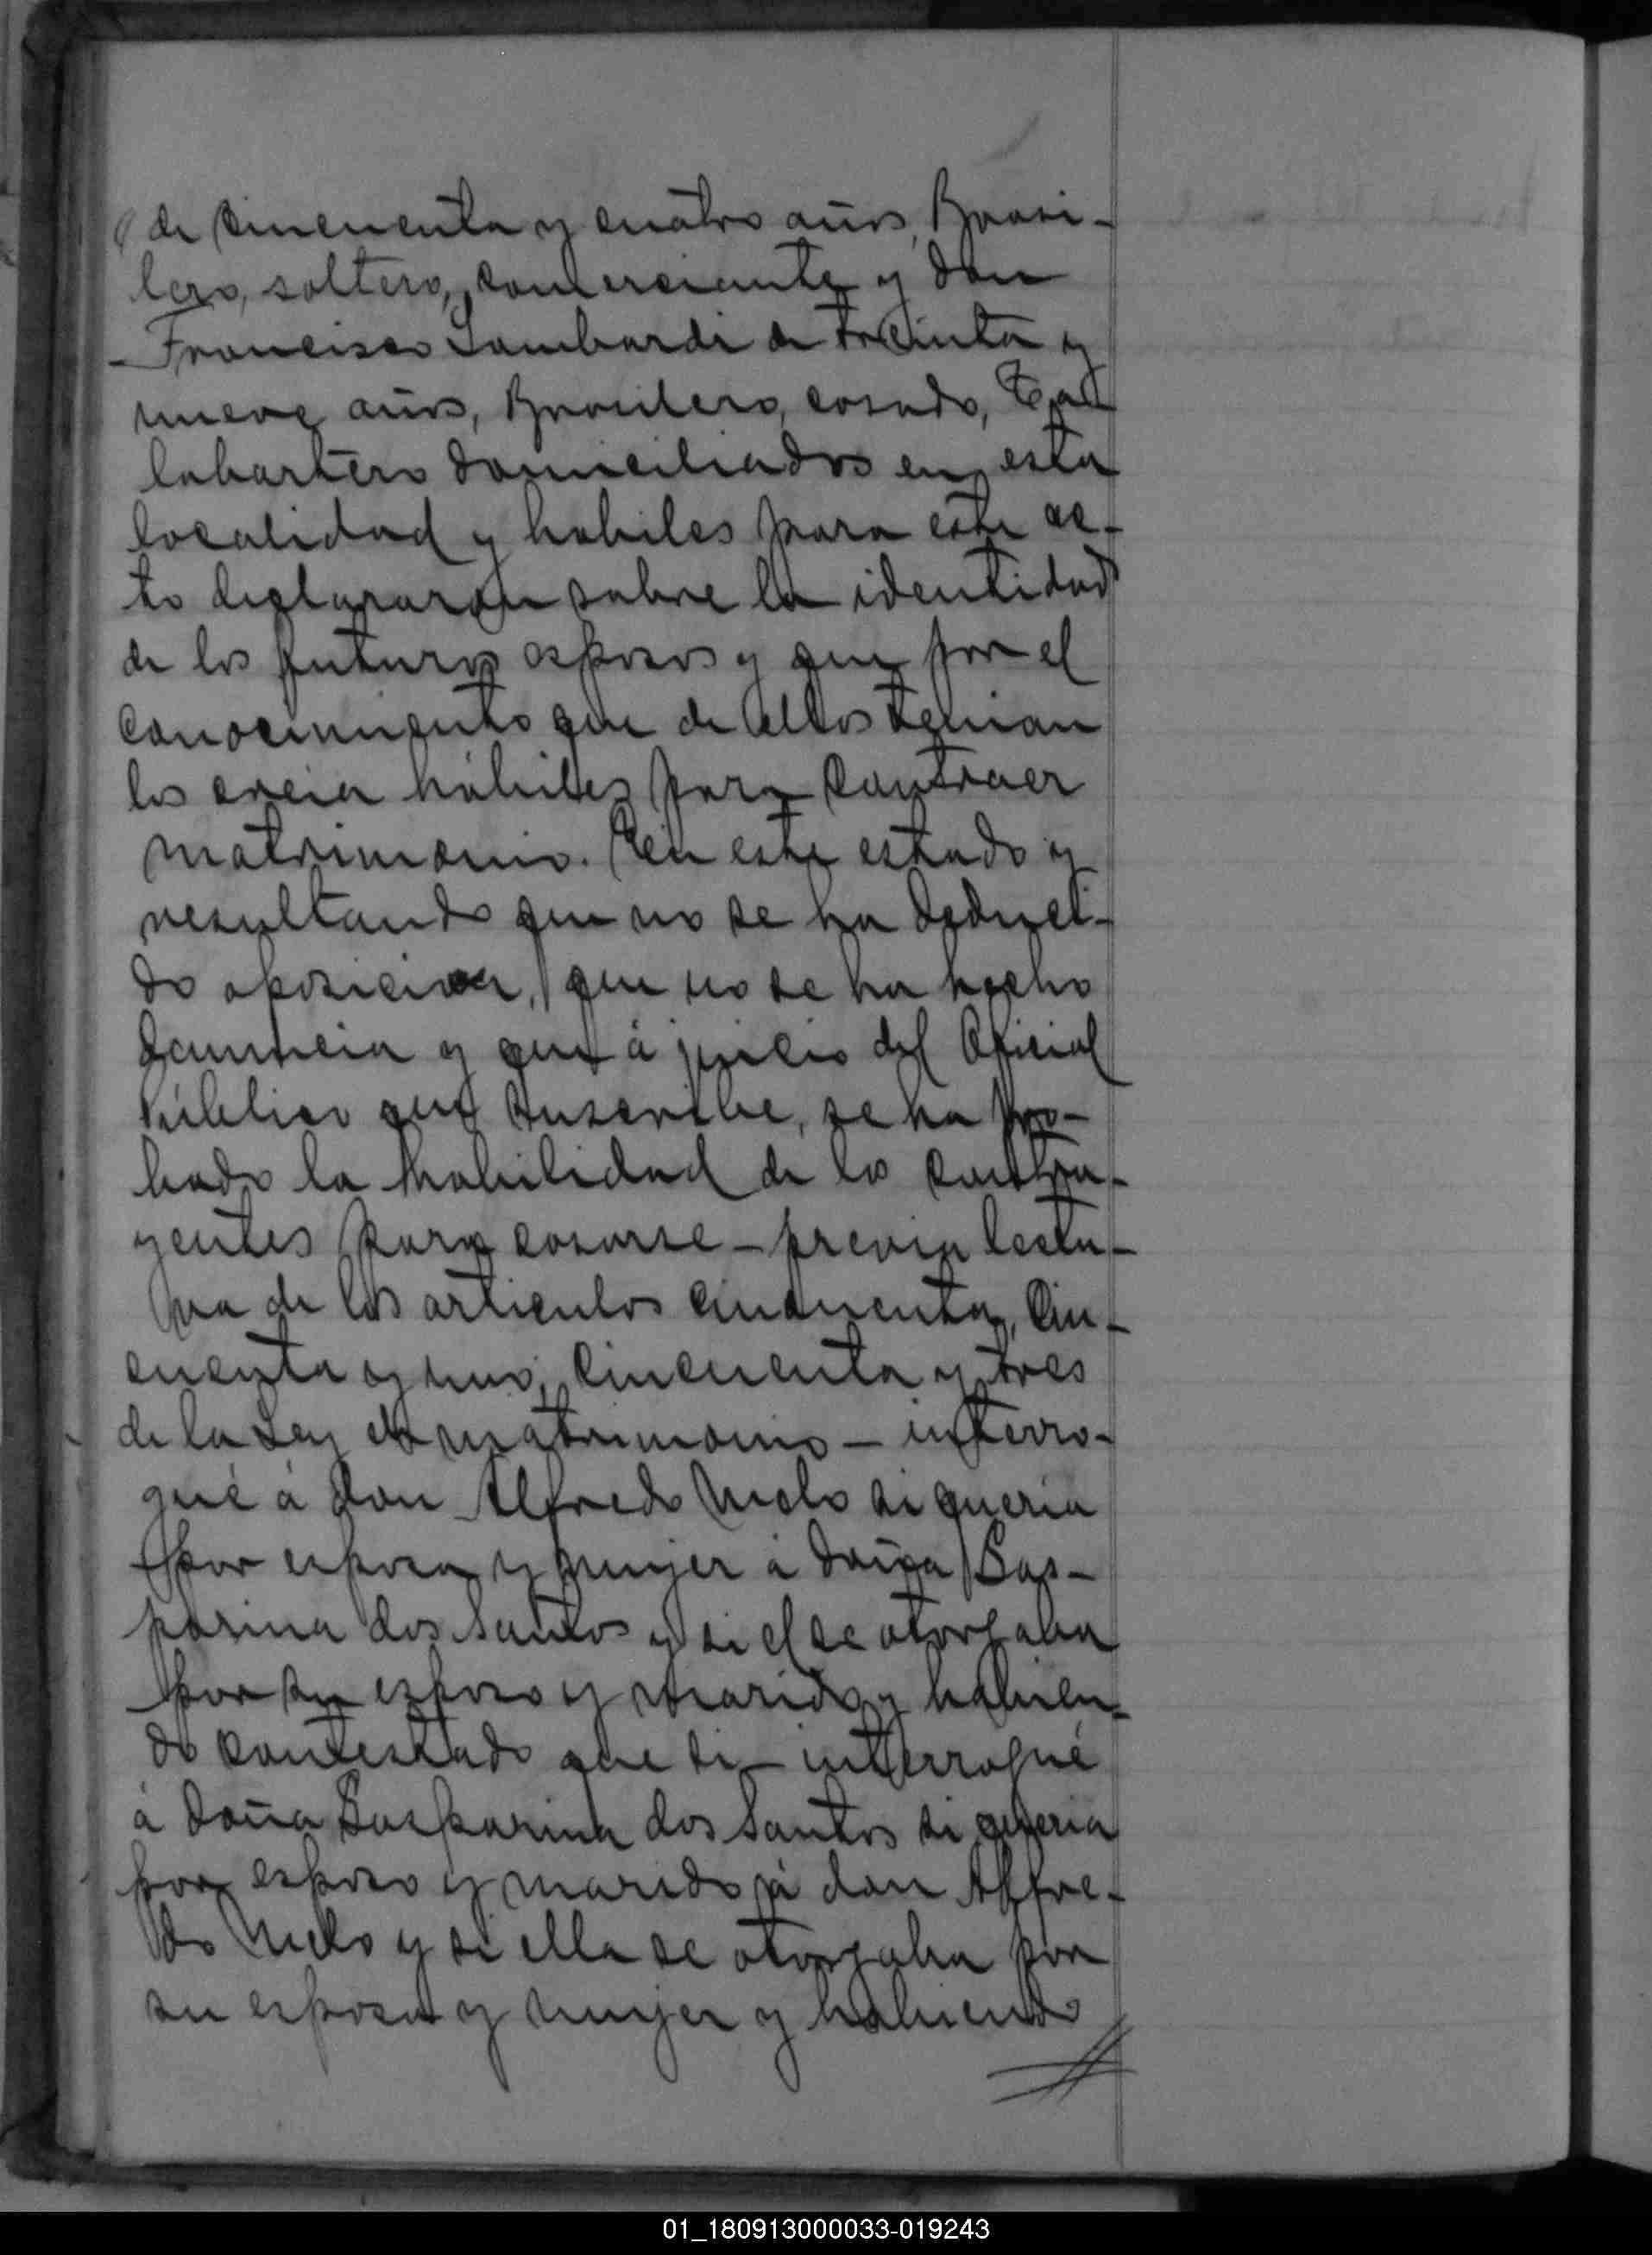 de cincuenta y cuatro años, Brasi-
lero, soltero, comerciante y don
Francisco Lombardi de treinta y
nueve años, Brasilero, casado, Ta
labartero domiciliados en esta
localidad y habiles para este ac-
to declararon sobre la identidad
de los futuros esposos y que por el
conocimiento que de ellos tenian
los creia hábiles para contraer
matrimonio. En este estado y
resultando que no se ha deduci-
do oposicion, que no se ha hecho
denuncia y que á juicio del Oficial
Público que suscribe, se ha pro-
bado la habilidad de los contra-
yentes para casarse - previa lectu-
ra de los articulos cincuenta, Cin-
cuenta y uno, Cincuenta y tres
de la Ley de matrimonio - interro-
gué á don Alfredo Melo si queria
por esposa y mujer á doña Gas-
parina dos Santos y si el se otorgaba
por su esposo y marido y habien-
do contestado que si - interrogué
á doña Gasparina dos Santos si queria
por esposo y marido á don Alfre-
do Melo y si ella se otorgaba por
su esposa y mujer y habiendo
01_180913000033-019243